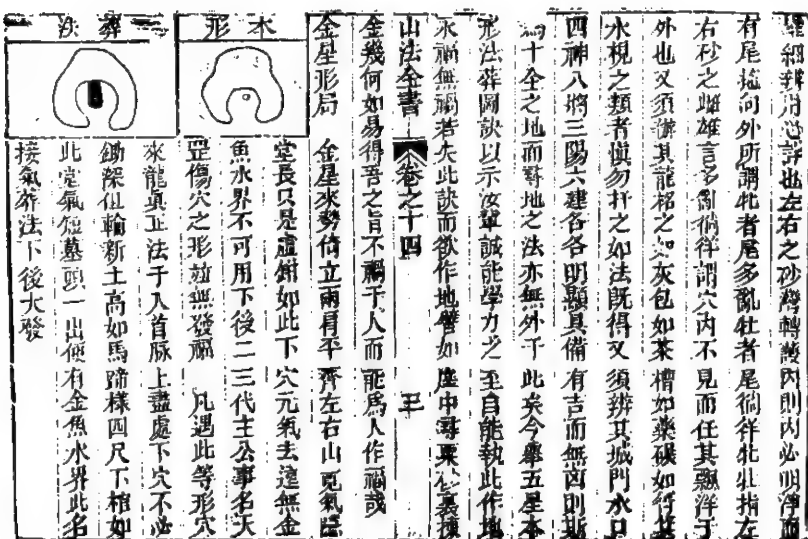 細辨用意詳也左右之砂灣轉護內則內必明淨而
有尾搖向外所謂牝者尾多亂牡者尾徜徉牝牡指左
右砂之雌雄言多亂徜徉謂穴內不見而任其飄洋于
外也又須辦其龍格之如灰包如菜槽如藥碾如
水梘之類者慎勿扦之如法既得又須辨其城門水口
四神八將三陽六建各各明顯具備有吉而無凶則斯
為十全之地而尋地之法亦無外于此矣今舉五星本
形法葬圖訣以示汝輩誠能學力之至自能執此作地
永福無禍若失此訣而欲作地譬如塵中尋粟裏揀
山法全書 卷之十四 三
金幾何如易得吾之旨不禍于人而能為人作福哉
金星形局 金星來勢倚立兩肩平齊左右山寬氣
堂長只是虛鉗如此下穴元氣去遠無金
魚水界不可用下後二三代主公事名天
罡傷穴之形並無發福 凡遇此等形穴
來龍真正法于入首脈上盡處下穴不必
鋤深但輸新土高如馬蹄樣四尺下棺如
此堂氣短墓頭一出便有金魚水界此名
接氣葬法下後大發
本形
葬法